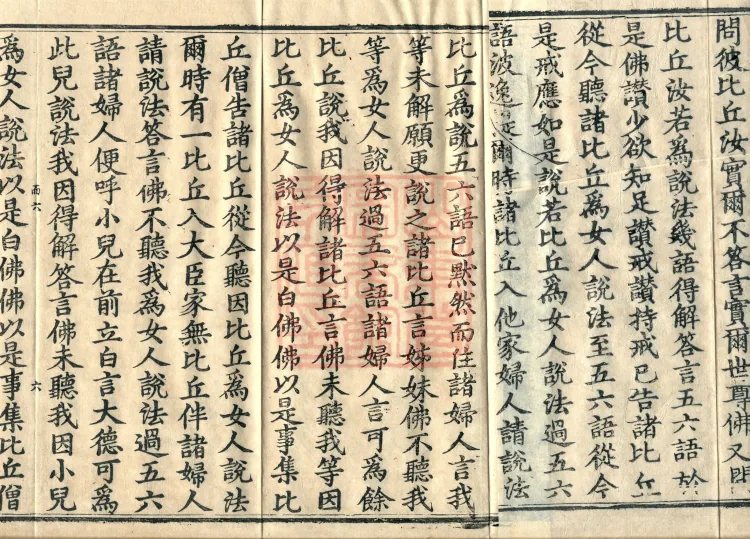 問彼比丘汝實爾不答言實爾世尊佛又問
比丘汝若為說法幾語得解答言五六語於
是佛讚少欲知足讚戒讚持戒已告諸比丘
從今聽諸比丘為女人說法至五六語從今
是戒應如是說若比丘為女人說法過五六
語波逸提爾時諸比丘入他家婦人請說法
比丘為說五六語已默然而住諸婦人言我
等未解願更說之諸比丘言姊妹佛不聽我
等為女人說法過五六語諸婦人言可為餘
比丘說我因得解諸比丘言佛未聽我等因
比丘為女人說法以是白佛佛以是事集比
丘僧告諸比丘從今聽因比丘為女人說法
爾時有一比丘入大臣家無比丘伴諸婦人
請說法答言佛不聽我為女人說法過五六
語諸婦人便呼小兒在前立白言大德可為
此兒說法我因得解答言佛未聽我因小兒
而六 六
為女人說法以是白佛佛以是事集比丘僧